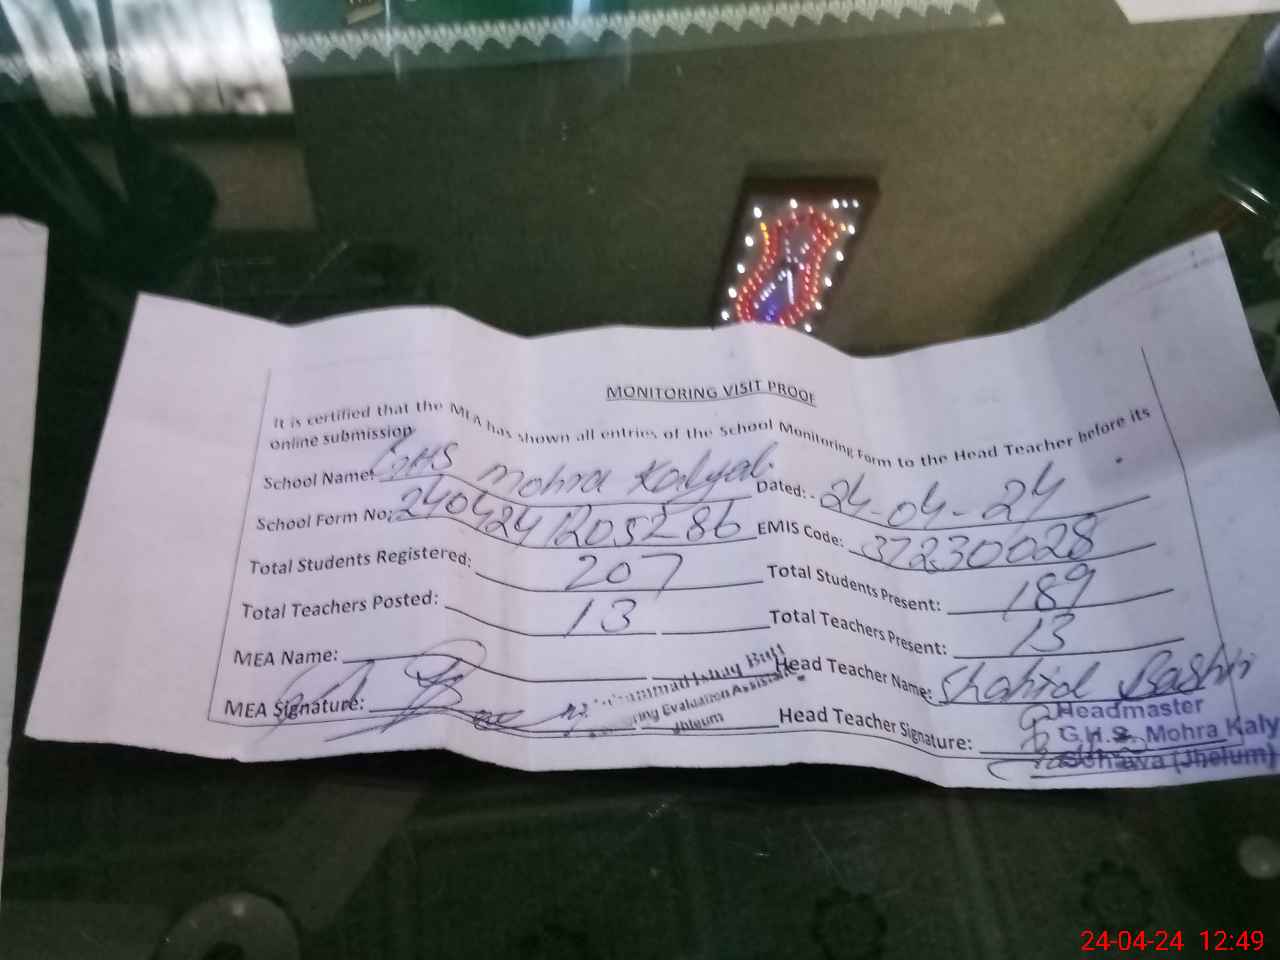 MONITORING VISIT PROOF
It is certified that the MEA has shown all entries of the School Monitoring Form to the Head Teacher before its
online submission
School Name: GHS Mohra Kalyal Dated:- 24-04-24
School Form No: 2404241205286 EMIS Code: 37230028
Total Students Registered: 207 Total Students Present: 189
Total Teachers Posted: 13 Total Teachers Present: 13
MEA Name: Head Teacher Name: Shahid Bashir
MEA Signature: Head Teacher Signature:
Evaluation Assistant
Jhleum
Headmaster
G.H.S. Mohra Kaly
Sohawa (Jhelum)
24-04-24 12:49